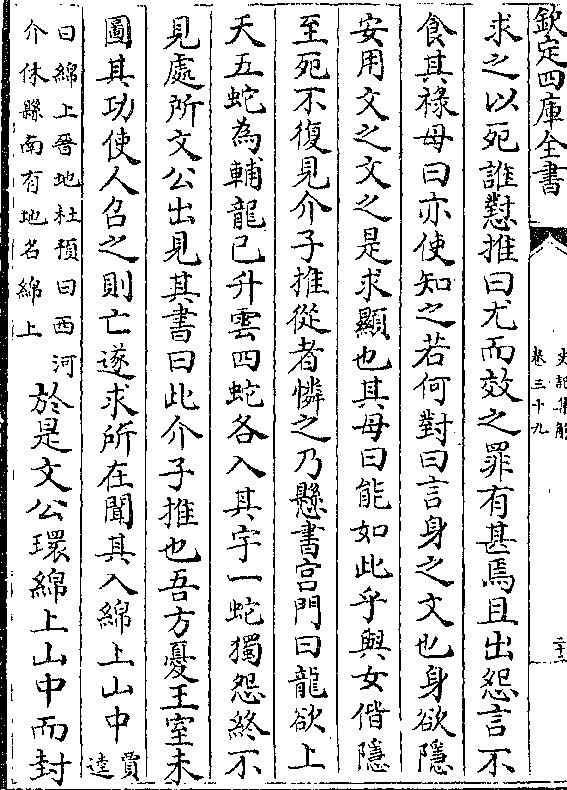 欽定四庫全書
史記集解
卷三十九
二十
求之以死誰懟推曰尤而效之罪有甚焉且出怨言不
食其祿母曰亦使知之若何對曰言身之文也身欲隱
安用文之文之是求顯也其母曰能如此乎與女偕隱
至死不復見介子推從者憐之乃懸書宫門曰龍欲上
天五蛇為輔龍已升雲四蛇各入其宇一蛇獨怨終不
見處所文公出見其書曰此介子推也吾方憂王室未
圖其功使人召之則亡遂求所在聞其入綿上山中賈
逵
曰綿上晉地杜預曰西河
介休縣南有地名綿上
於是文公環綿上山中而封